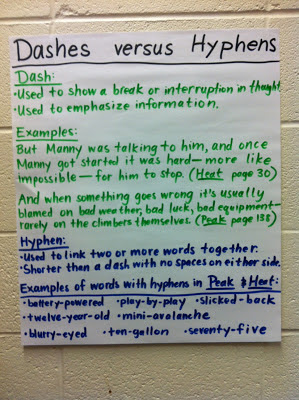 Dashes versus Hyphens
Dash:
•Used to show a break or interruption in thought
•Used to emphasize information.
Examples:
But Manny was talking to him, and once
Manny got started it was hard—more like
impossible—for him to stop. (Heat page 30)
And when something goes wrong it's usually
blamed on bad weather, bad luck, bad equipment—
rarely on the climbers themselves. (Peak page 138)
Hyphen:
•Used to link two or more words together.
•Shorter than a dash with no spaces on either side.
Examples of words with hyphens in Peak & Heat:
•battery-powered •play-by-play •slicked-back
•twelve-year-old •mini-avalanche
•blurry-eyed •ten-gallon •seventy-five